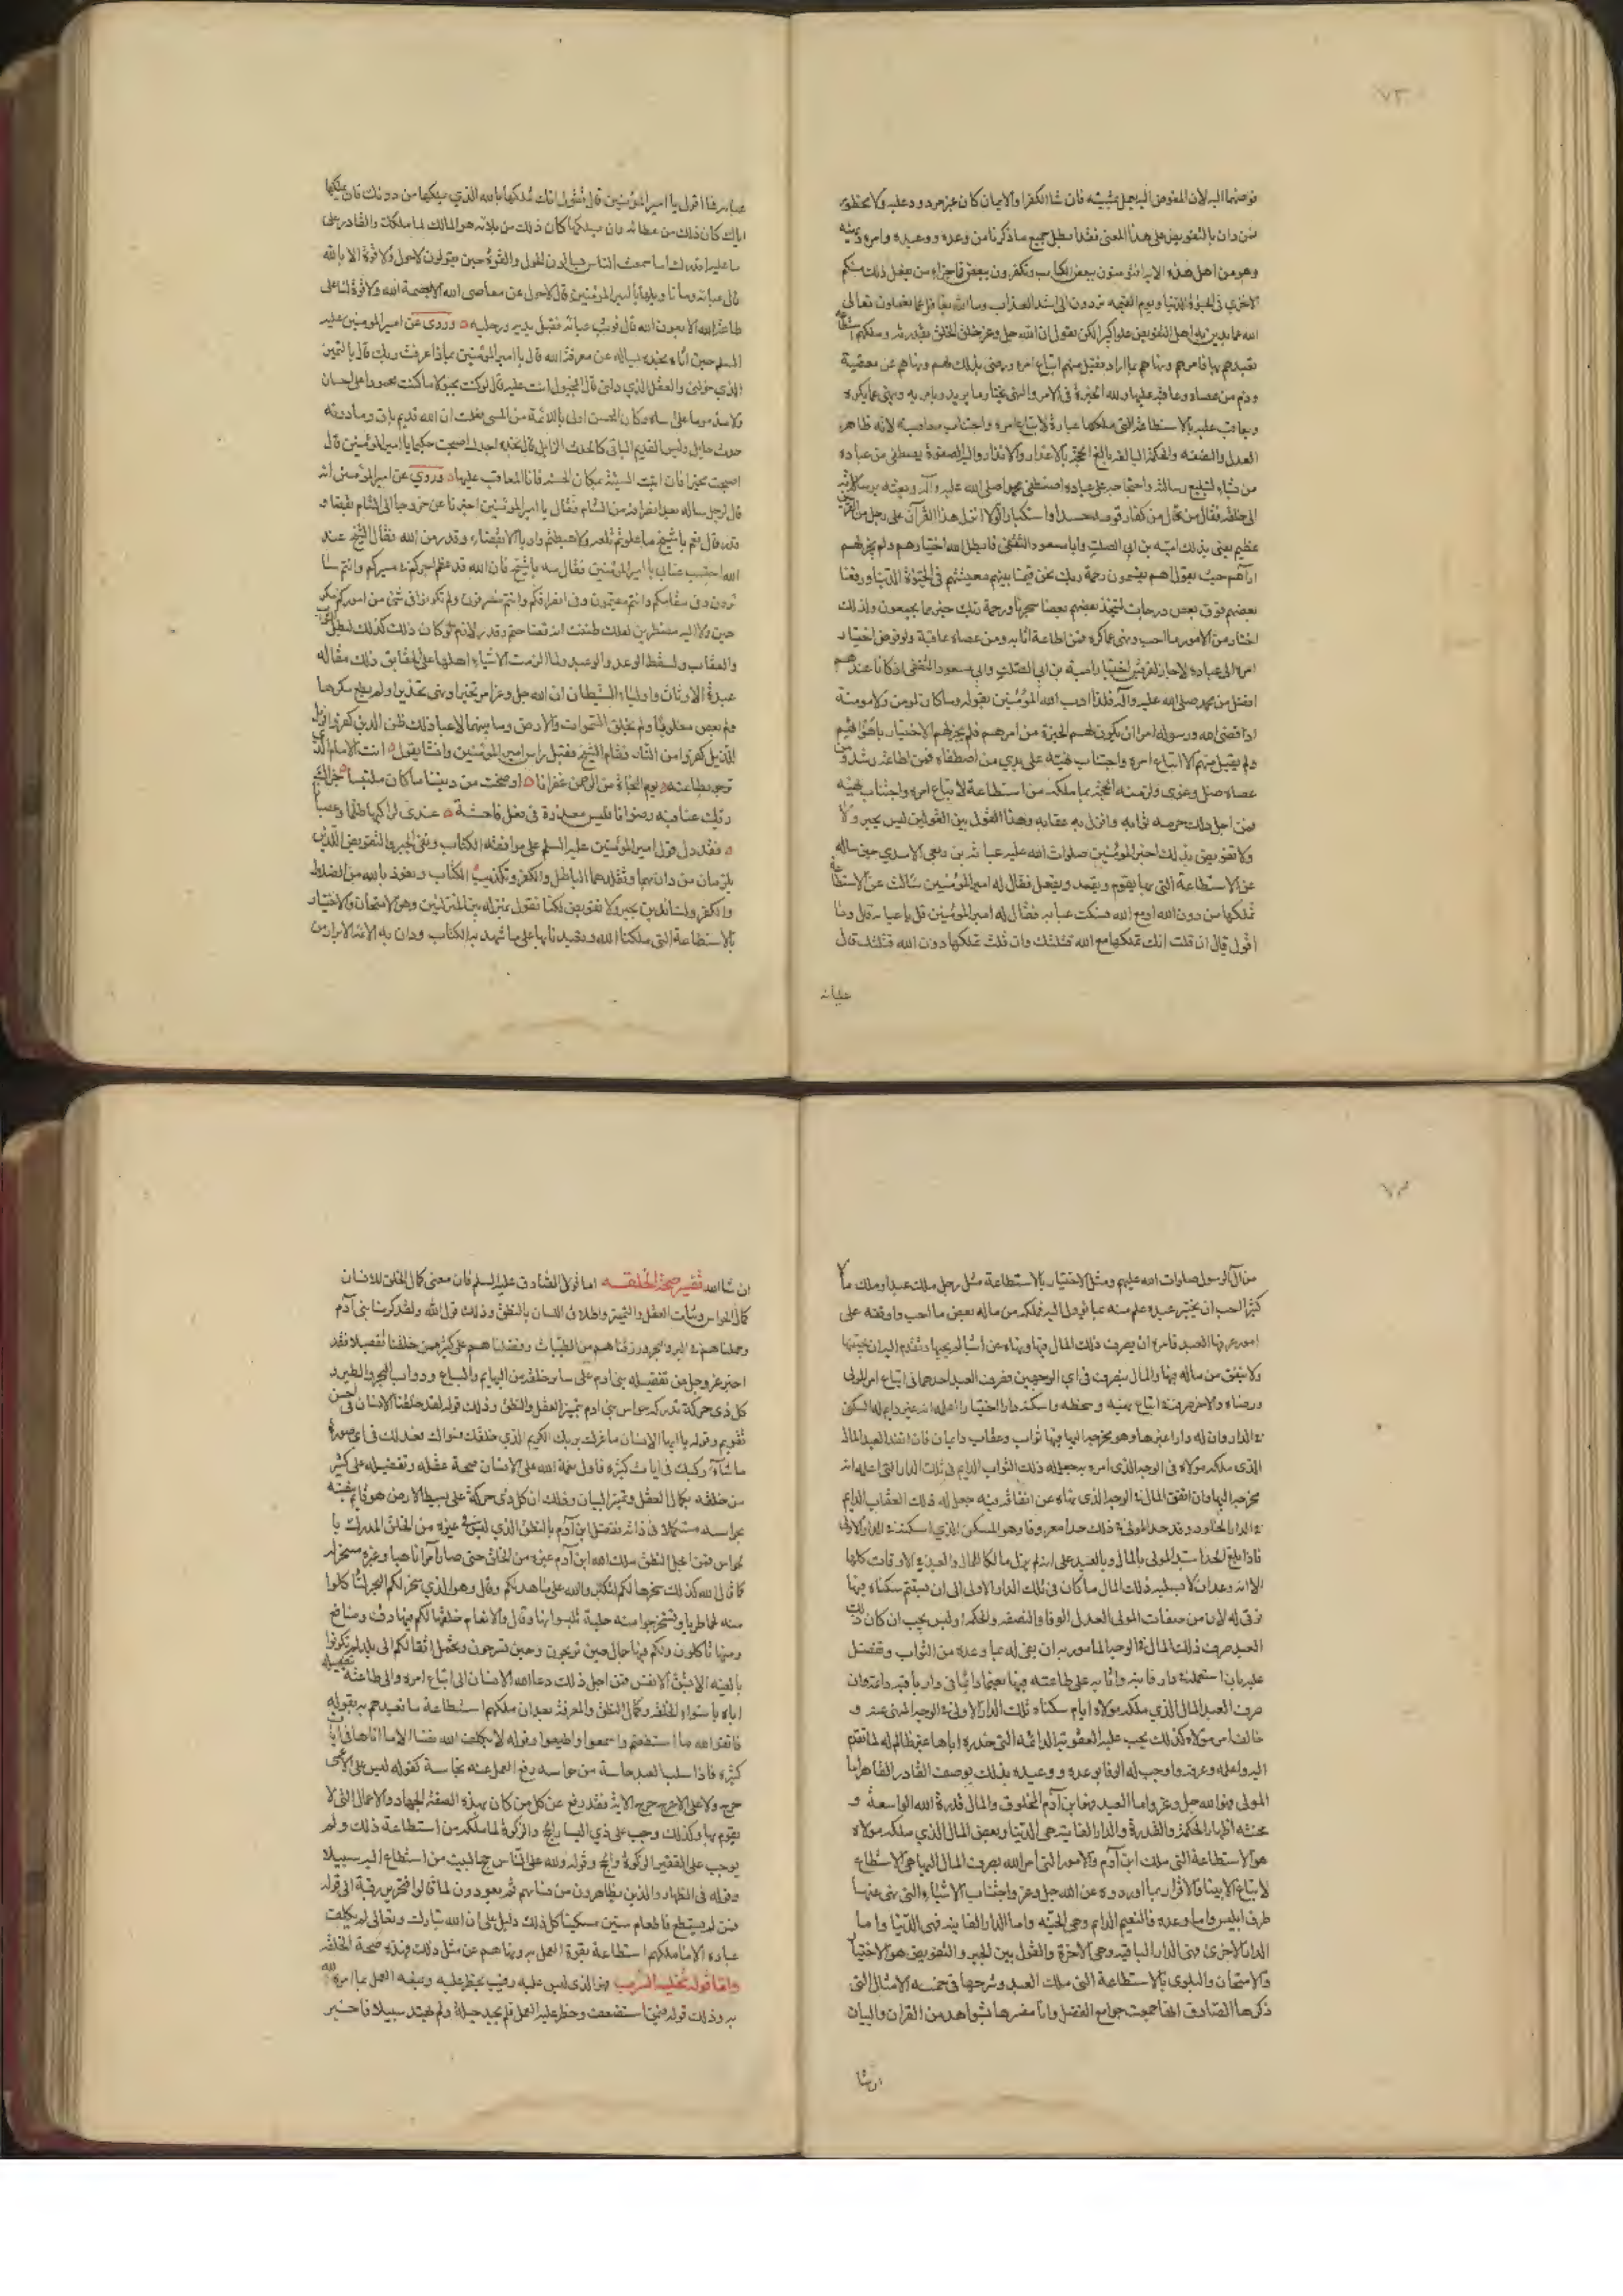 ٧٣
فوضهما اليه لان المفوض اليه يعمل بمشيته فان شا الكفر او الايمان كان غير مردود عليه ولا محظور
فمن دان بالتفويض على هذا المعنى فقد ابطل جميع ما ذكرنا من وعده ووعيده وامره ونهيه
وهو من اهل هذه الاية افتؤمنون ببعض الكتاب وتكفرون ببعض فما جزاء من يفعل ذلك منكم
الا خزي في الحيوة الدنيا ويوم القيمه تردون الى اشد العذاب وما الله بغافل عما تعملون تعالى
الله عما يدين به اهل التفويض علوا كبيرا لكن نقول ان الله جل وعز خلق الخلق بقدرته وملكهم استطاعة
تعبدهم بها فامرهم ونهاهم بما اراد فقبل منهم اتباع امره ورضي بذلك لهم ونهاهم عن معصيته
وذم من عصاه وعاقبه عليها ولله الخيرة في الامر والنهي يختار ما يريد ويامر به وينهى عما يكره
ويعاقب عليه بالاستطاعة التي ملكها عباده لاتباع امره واجتناب معاصيه لانه ظاهر
العدل والنصفه والحكمة البالغه بالغ الحجة بالاعذار والانذار واليه الصفوة يصطفي من عباده
من يشاء لتبليغ رسالته واحتجاجه على عباده اصطفى محمدا صلى الله عليه وآله وبعثه برسالاته
الى خلقه فقال من قال من كفار قومه حسدا واستكبارا لولا انزل هذا القرآن على رجل من القريتين
عظيم يعني بذلك امية بن ابي الصلت وابا مسعود الثقفي فابطل الله اختيارهم ولم يجز لهم
ارآهم حيث يقول اهم يقسمون رحمة ربك نحن قسمنا بينهم معيشتهم في الحيوة الدنيا ورفعنا
بعضهم فوق بعض درجات ليتخذ بعضهم بعضا سخريا ورحمة ربك خير مما يجمعون ولذلك
اختار من الامور ما احب ونهى عما كره فمن اطاعه اثابه ومن عصاه عاقبه ولو فوض اختيار
امره الى عباده لاجاز لقريش اختيار امية بن ابي الصلت وابي مسعود الثقفي اذ كانا عندهم
افضل من محمد صلى الله عليه وآله فلما ادب الله المؤمنين بقوله وما كان لمومن ولا مومنة
اذا قضى الله ورسوله امرا ان يكون لهم الخيرة من امرهم فلم يجز لهم الاختيار باهوائهم
ولم يقبل منهم الا اتباع امره واجتناب نهيه على يدي من اصطفاه فمن اطاعه رشد ومن
عصاه ضل وغوى ولزمته الحجة بما ملكه من استطاعة لاتباع امره واجتناب نهيه
فمن اجل ذلك حرمه ثوابه وانزل به عقابه وهذا القول بين القولين ليس بجبر ولا
ولا تفويض بذلك اخبر المؤمنين صلوات الله عليه عباية بن ربعي الاسدي حين ساله
عن الاستطاعة التي بها يقوم ويقعد ويفعل فقال له امير المؤمنين سالت عن الاستطاعة
تملكها من دون الله او مع الله فسكت عبايه فقال له امير المؤمنين قل يا عبايه قال وما
اقول قال ان قلت انك تملكها مع الله قتلتك وان قلت تملكها دون الله قتلتك قال
عبايه
عبايه فما اقول يا امير المؤمنين قال تقول انك تملكها بالله الذي يملكها من دونك فان يملكها
اياك كان ذلك من عطائه وان يسلبكها كان ذلك من بلائه هو المالك لما ملكك والقادر على
ما عليه اقدرك اما سمعت الناس يسالون الحول والقوة حين يقولون لا حول ولا قوة الا بالله
قال عبايه وما تاويلها يا امير المؤمنين قال لا حول عن معاصي الله الا بعصمة الله ولا قوة لنا على
طاعة الله الا بعون الله قال فوثب عبايه فقبل يديه ورجليه ه وروي عن امير المؤمنين عليه
السلم حين اتاه نجده يساله عن معرفة الله قال يا امير المؤمنين بماذا عرفت ربك قال بالتمييز
الذي خولني والعقل الذي دلني قال افمجبول انت عليه قال لو كنت مجبولا ما كنت محمودا على احسان
ولا مذموما على اساءة وكان المحسن اولى باللائمة من المسي فعلمت ان الله قديم باق وما دونه
حدث حايل وليس القديم الباقي كالحدث الزايل قال نجده اجدك اصبحت حكيما يا امير المؤمنين قال
اصبحت مخيرا فان اتيت السيئة مكان الحسنه فانا المعاقب عليها ه وروي عن امير المؤمنين انه
قال لرجل ساله بعد انصرافه من الشام فقال يا امير المؤمنين اخبرنا عن خروجنا الى الشام بقضاء و
قدر قال نعم يا شيخ ما علوتم تلعه ولا هبطتم واديا الا بقضاء وقدر من الله فقال الشيخ عند
الله احتسب عناي يا امير المؤمنين فقال مه يا شيخ فان الله قد عظم اجركم في مسيركم وانتم سا
ئرون وفي مقامكم وانتم مقيمون وفي انصرافكم وانتم منصرفون ولم تكونوا في شئ من اموركم مكر
هين ولا اليه مضطرين لعلك ظننت انه قضا حتم وقدر لازم لو كان ذلك كذلك لبطل الثواب
والعقاب ولسقط الوعد والوعيد ولما الزمت الاشياء اهلها على الحقايق ذلك مقاله
عبدة الاوثان واولياء الشيطان ان الله جل وعز امر تخييرا ونهى تحذيرا ولم يطع مكرها
ولم يعص مغلوبا ولم يخلق السموات والارض وما بينهما لاعبا ذلك ظن الذين كفروا فويل
للذين كفروا من النار فقام الشيخ فقبل راس امير المؤمنين وانشا يقول ه انت الامام الذي
نرجو بطاعته ه يوم النجاة من الرحمن غفرانا ه اوضحت من ديننا ما كان ملتبسا ه جزاك
ربك عنا فيه رضوانا فليس معذرة في فعل فاحشة ه عندي لراكبها ظلما وعصيانا
ه فقد دل قول امير المؤمنين عليه السلم على موافقه الكتاب ونفي الجبر والتفويض اللذين
يلزمان من دان بهما وتقلدهما الباطل والكفر وتكذيب الكتاب ونعوذ بالله من الضلالة
والكفر ولسنا ندين بجبر ولا تفويض لكنا نقول بمنزله بين المنزلتين وهو الامتحان والاختيار
بالاستطاعة التي ملكنا الله وتعبدنا بها على ما شهد به الكتاب ودان به الائمة الابرار من
٧٤
من آل الرسول صلوات الله عليهم ومثل الاختيار بالاستطاعة مثل رجل ملك عبدا وملك مالا
كثيرا احب ان يختبر عبده على علم منه بما يؤول اليه فملكه من ماله بعض ما احب ووافقه على
امور عرفها العبد فامره ان يصرف ذلك المال فيها ونهاه عن اسباب لم يحبها وتقدم اليه ان يجتنبها
ولا ينفق من ماله فيها والمال يتصرف في اي الوجهين فصرف العبد احدهما في اتباع امر المولى
ورضاه والاخر صرفه في اتباع نهيه وسخطه واسكنه دار اختبار اعلمه انه غير دايم له السكنى
في الدار وان له دارا غيرها وهو مخرجه اليها فيها ثواب وعقاب دايمان فان انفذ العبد المال
الذي ملكه مولاه في الوجه الذي امره به جعل له ذلك الثواب الدايم في تلك الدار التي اعلمه انه
مخرجه اليها وان انفق المال في الوجه الذي نهاه عن انفاقه فيه جعل له ذلك العقاب الدايم
في الدار الخلود وقد حد المولى في ذلك حدا معروفا وهو المسكن الذي اسكنه في الدار الاولى
فاذا بلغ الحد استبدل المولى بالمال وبالعبد على انه لم يزل مالكا للمال والعبد في الاوقات كلها
الا انه وعد ان لا يسلبه ذلك المال ما كان في تلك الدار الاولى الى ان يستتم سكناه فيها
فوفى له لان من صفات المولى العدل الوفا والنصفه والحكمة اوليس يجب ان كان ذلك
العبد صرف ذلك المال في الوجه المامور به ان يفي له بما وعده من الثواب وتفضل
عليه بان استعمله في دار فانيه واثابه على طاعته فيها نعيما دائما في دار باقيه دايمه وان
صرف العبد المال الذي ملكه مولاه ايام سكناه تلك الدار الاولى في الوجه المنهي عنه و
خالف امر مولاه كذلك يجب عليه العقوبة الدائمه التي حذره اياها غير ظالم له لما تقدم
اليه واعلمه وعرفه واوجب له الوفا بوعده ووعيده بذلك يوصف القادر القاهر اما
المولى فهو الله جل وعز واما العبد فهو ابن آدم المخلوق والمال قدرة الله الواسعة و
محنته اظهار الحكمة والقدرة والدار الفانيه هي الدنيا وبعض المال الذي ملكه مولاه
هو الاستطاعة التي ملك ابن آدم والامور التي امر الله بصرف المال اليها هي الاستطاع
لاتباع الانبيا والاقرار بما اوردوه عن الله جل وعز واجتناب الاشياء التي نهى عنها
طرف ابليس واما وعده فالنعيم الدايم وهي الجنه واما الدار الفانيه فهي الدنيا واما
الدار الاخرى فهي الدار الباقيه وهي الاخرة والقول بين الجبر والتفويض هو الاختبار
والامتحان والبلوى بالاستطاعة التي ملك العبد وشرحها في خمسه الامثال التي
ذكرها الصادق انها جمعت جوامع الفضل وانا مفسرها بشواهد من القران والبيان
ان شا
ان شا الله تفسير صحة الخلقه اما قول الصادق عليه السلم فان معنى كمال الخلق للانسان
كمال الحواس وثبات العقل والتمييز واطلاق اللسان بالنطق وذلك قول الله ولقد كرمنا بني آدم
وحملناهم في البر والبحر ورزقناهم من الطيبات وفضلناهم على كثير ممن خلقنا تفضيلا فقد
اخبر عز وجل عن تفضيله بني ادم على سائر خلقه من البهايم والسباع ودواب البحر والطير و
كل ذي حركة تدركه حواس بني ادم بتمييز العقل والنطق وذلك قوله لقد خلقنا الانسان في احسن
تقويم وقوله يا ايها الانسان ما غرك بربك الكريم الذي خلقك فسواك فعدلك في اي صورة
ما شآء ركبك في ايات كثيره فاول نعمة الله على الانسان صحة عقله وتفضيله على كثير
من خلقه بكمال العقل وتمييز البيان وذلك ان كل ذي حركة على بسيط الارض هو قايم بنفسه
بحواسه مستكمل في ذاته ففضل ابن آدم بالنطق الذي ليس في غيره من الخلق المدرك با
لحواس فمن اجل النطق ملك الله ابن آدم غيره من الخلق حتى صار آمرا ناهيا وغيره مسخر له
كما قال الله كذلك سخرها لكم لتكبروا الله على ما هديكم وقال وهو الذي سخر لكم البحر لتاكلوا
منه لحما طريا وتستخرجوا منه حلية تلبسونها وقال والانعام خلقها لكم فيها دفء ومنافع
ومنها تاكلون ولكم فيها جمال حين تريحون وحين تسرحون وتحمل اثقالكم الى بلد لم تكونوا
بالغيه الا بشق الانفس فمن اجل ذلك دعا الله الانسان الى اتباع امره والى طاعته بتفضيله
اياه باستواء الخلقه وكمال النطق والمعرفة بعد ان ملكهم استطاعة ما تعبدهم به بقوله
فاتقوا الله ما استطعتم واسمعوا واطيعوا وقوله لا يكلف الله نفسا الا ما اتاها في آيات
كثيره فاذا سلب العبد حاسة من حواسه رفع العمل عنه بحاسة كقوله ليس على الاعمى
حرج ولا على الاعرج حرج الاية فقد رفع عن كل من كان بهذه الصفة الجهاد والاعمال التي لا
يقوم بها وكذلك وجب على ذي اليسار الحج والزكوة لما ملكه من استطاعة ذلك ولم
يوجب على الفقير الزكوة والحج وقوله ولله على الناس حج البيت من استطاع اليه سبيلا
وقوله في الظهار والذين يظاهرون من نسائهم ثم يعودون لما قالوا فتحرير رقبة الى قوله
فمن لم يستطع فاطعام ستين مسكينا كل ذلك دليل على ان الله تبارك وتعالى لم يكلف
عباده الا ما ملكهم استطاعة بقوة العمل به ونهاهم عن مثل ذلك فهذه صحة الخلقه
واما قوله تخلية السرب فهو الذي ليس عليه رقيب يحظر عليه ويمنعه العمل بما امره الله
به وذلك قوله فيمن استضعف وحظر عليه العمل فلم يجد حيلة ولم يهتد سبيلا فاخبر